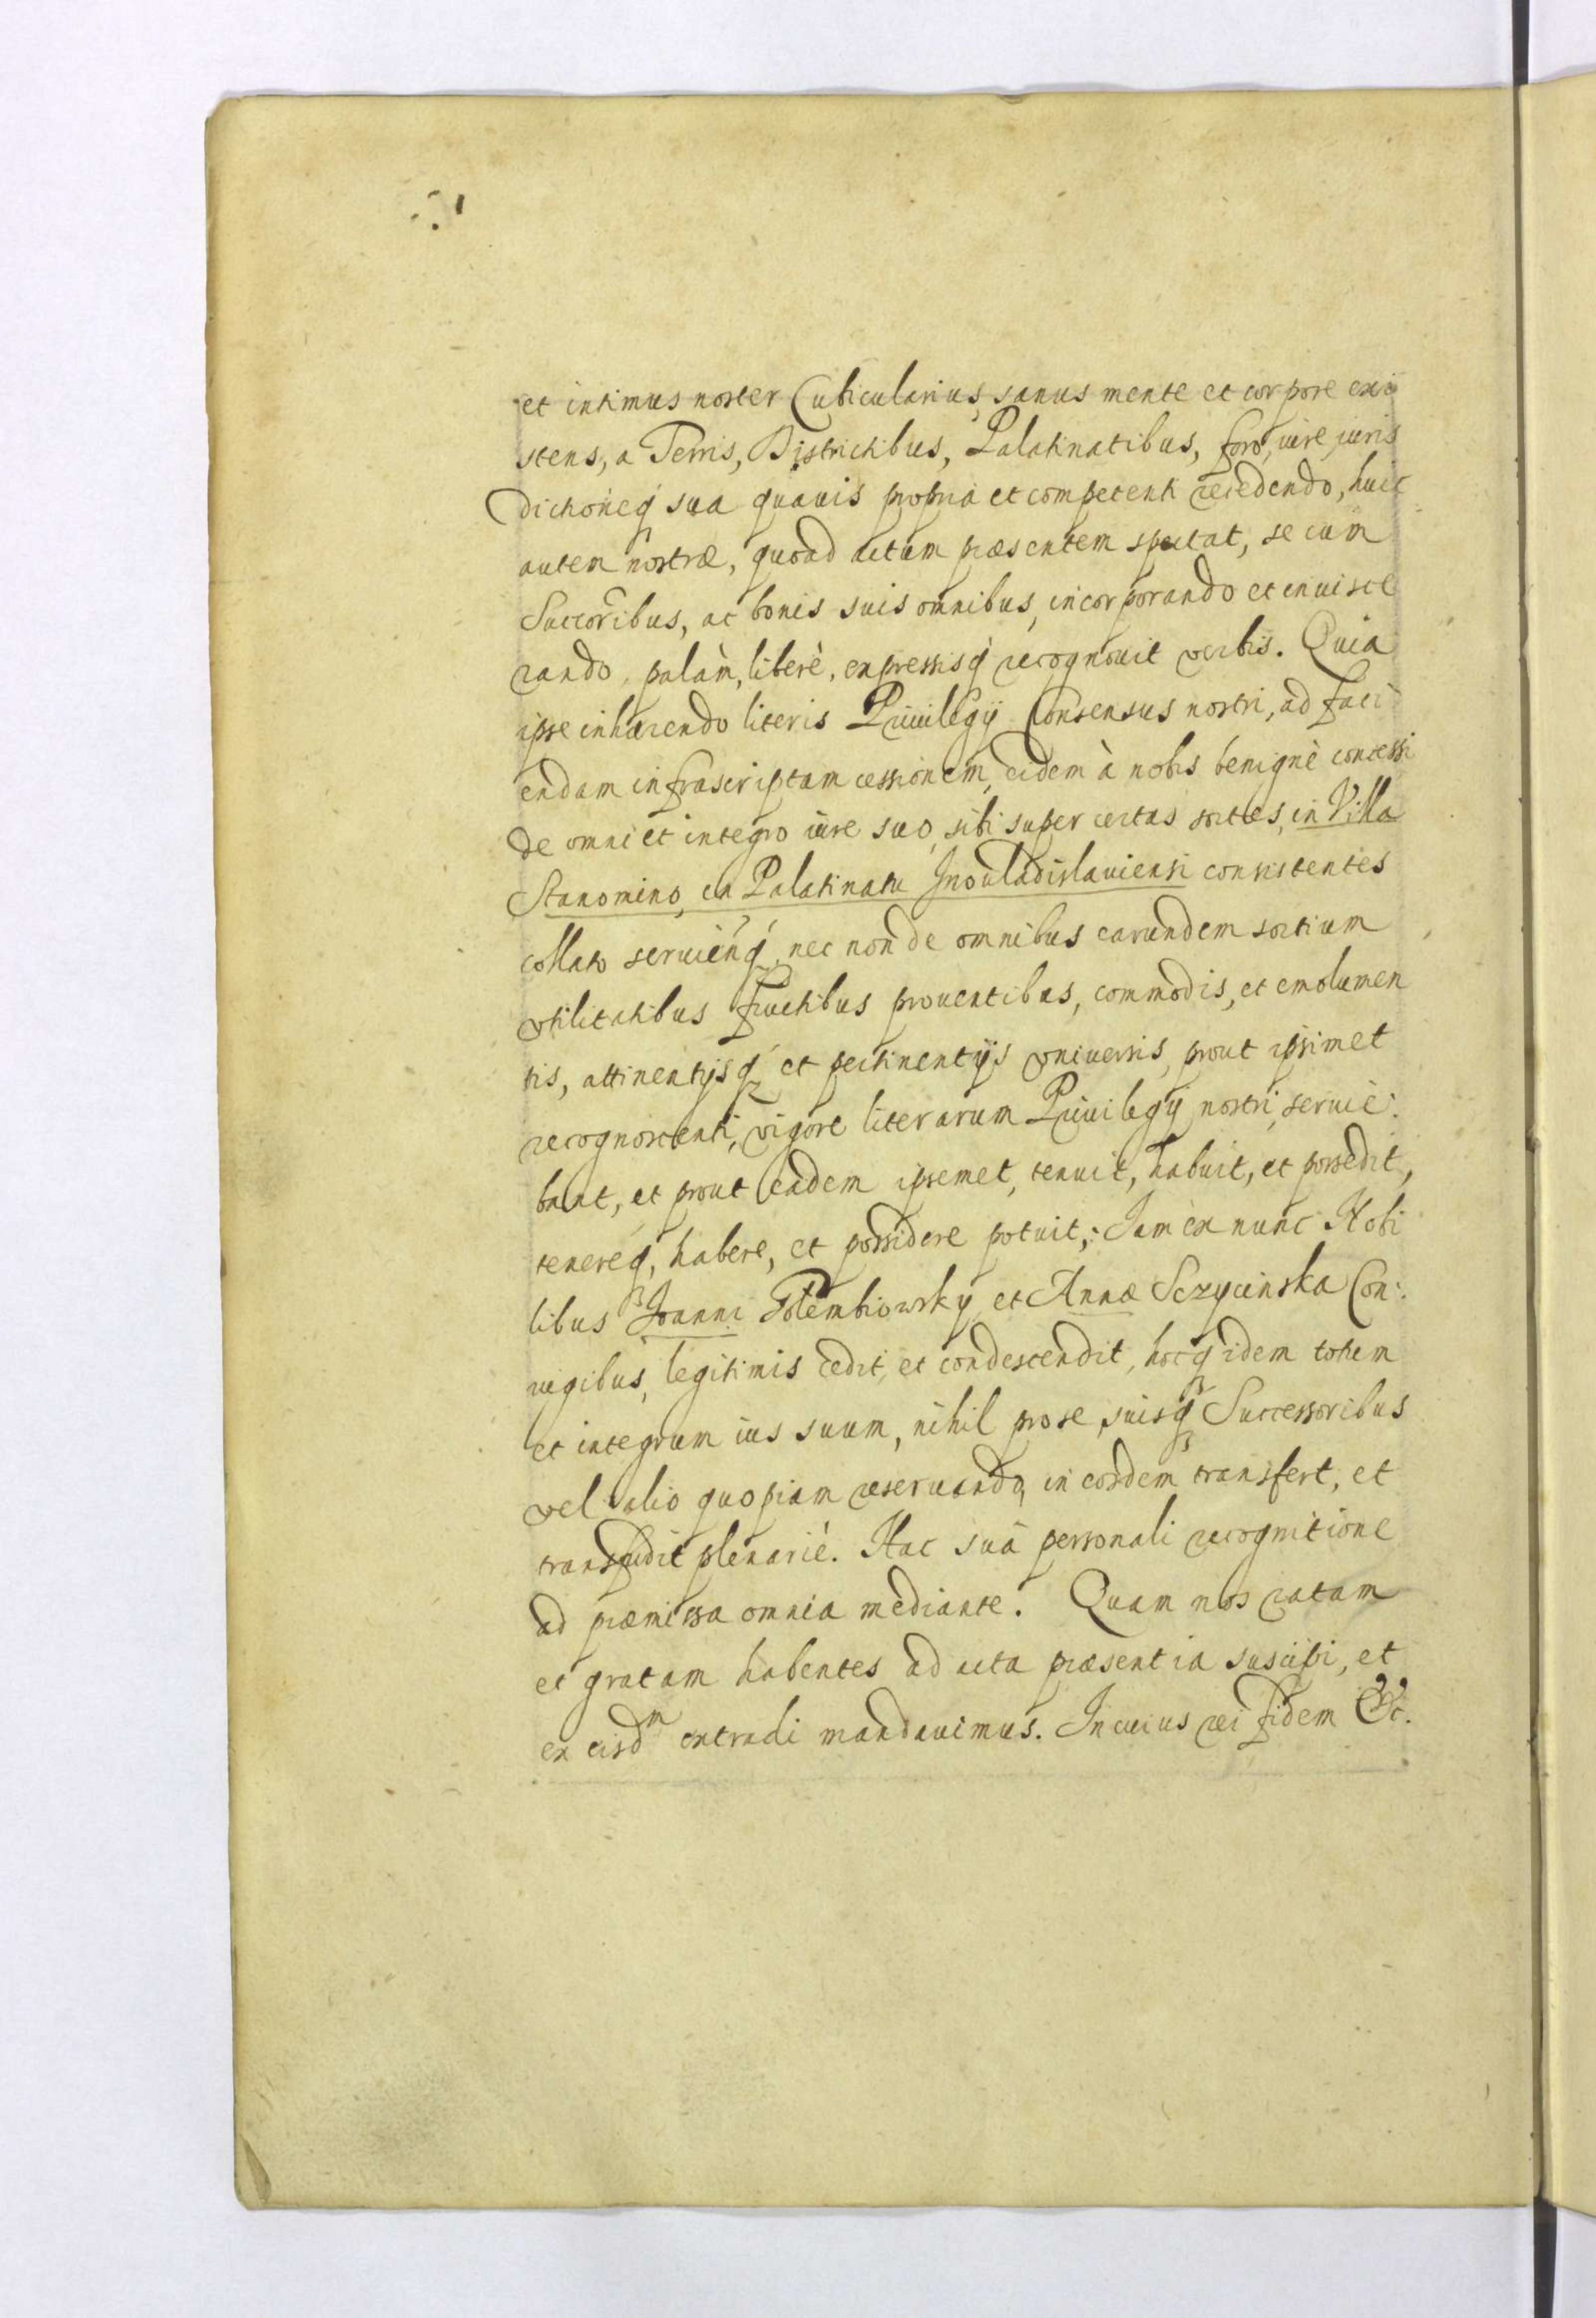 et intimus noster Cubicularius, sanus mente et corpore exi
stens, a Terris, Districtibus, Palatinatibus, foro, iure, iuris
dictioneq́ sua quauis propria et competenti recedendo, huic
autem nostræ, quoad actum præsentem spectat, se cum
Succoribus, ac bonis suis omnibus, incorporando et inuisce
rando, palàm, liberè, expressisq́ recognouit verbis. Quia
ipse inhærendo literis Priuilegÿ Consensus nostri, ad faci
endam infrascriptam cessionem, eidem à nobis benignè concessi
de omni et integro iure suo, sibi super certas sortes, in Villa
Stanomino, in Palatinatu Inouladislauiensi consistentes
collato seruienq́, nec non de omnibus earundem sortium
vtilitatibus fructibus prouentibus, commodis, et emolumen
tis, attinentijsq́ et pertinentijs vniuersis, prout ipsimet
recognoscenti, vigore literarum Priuilegÿ nostri, seruie:
bant, et prout eadem ipsemet, tenuit, habuit, et possedit,
tenereq́, habere, et possidere potuit,: Iam ex nunc Nobi
libus Joanni Gołembiowsky et Annæ Sczycinska Con:
iugibus, legitimis cedit, et condescendit, hocq́ idem totum
et integrum ius suum, nihil pro se, suisq́ Successoribus
vel alio quopiam reseruando, in eosdem transfert, et
transfudit plenariè. Hac suâ personali recognitione
ad præmissa omnia mediante. Quam nos ratam
et gratam habentes ad acta præsentia suscipi, et
ex eisdᵐ extradi mandauimus. In cuius rei fidem &c.